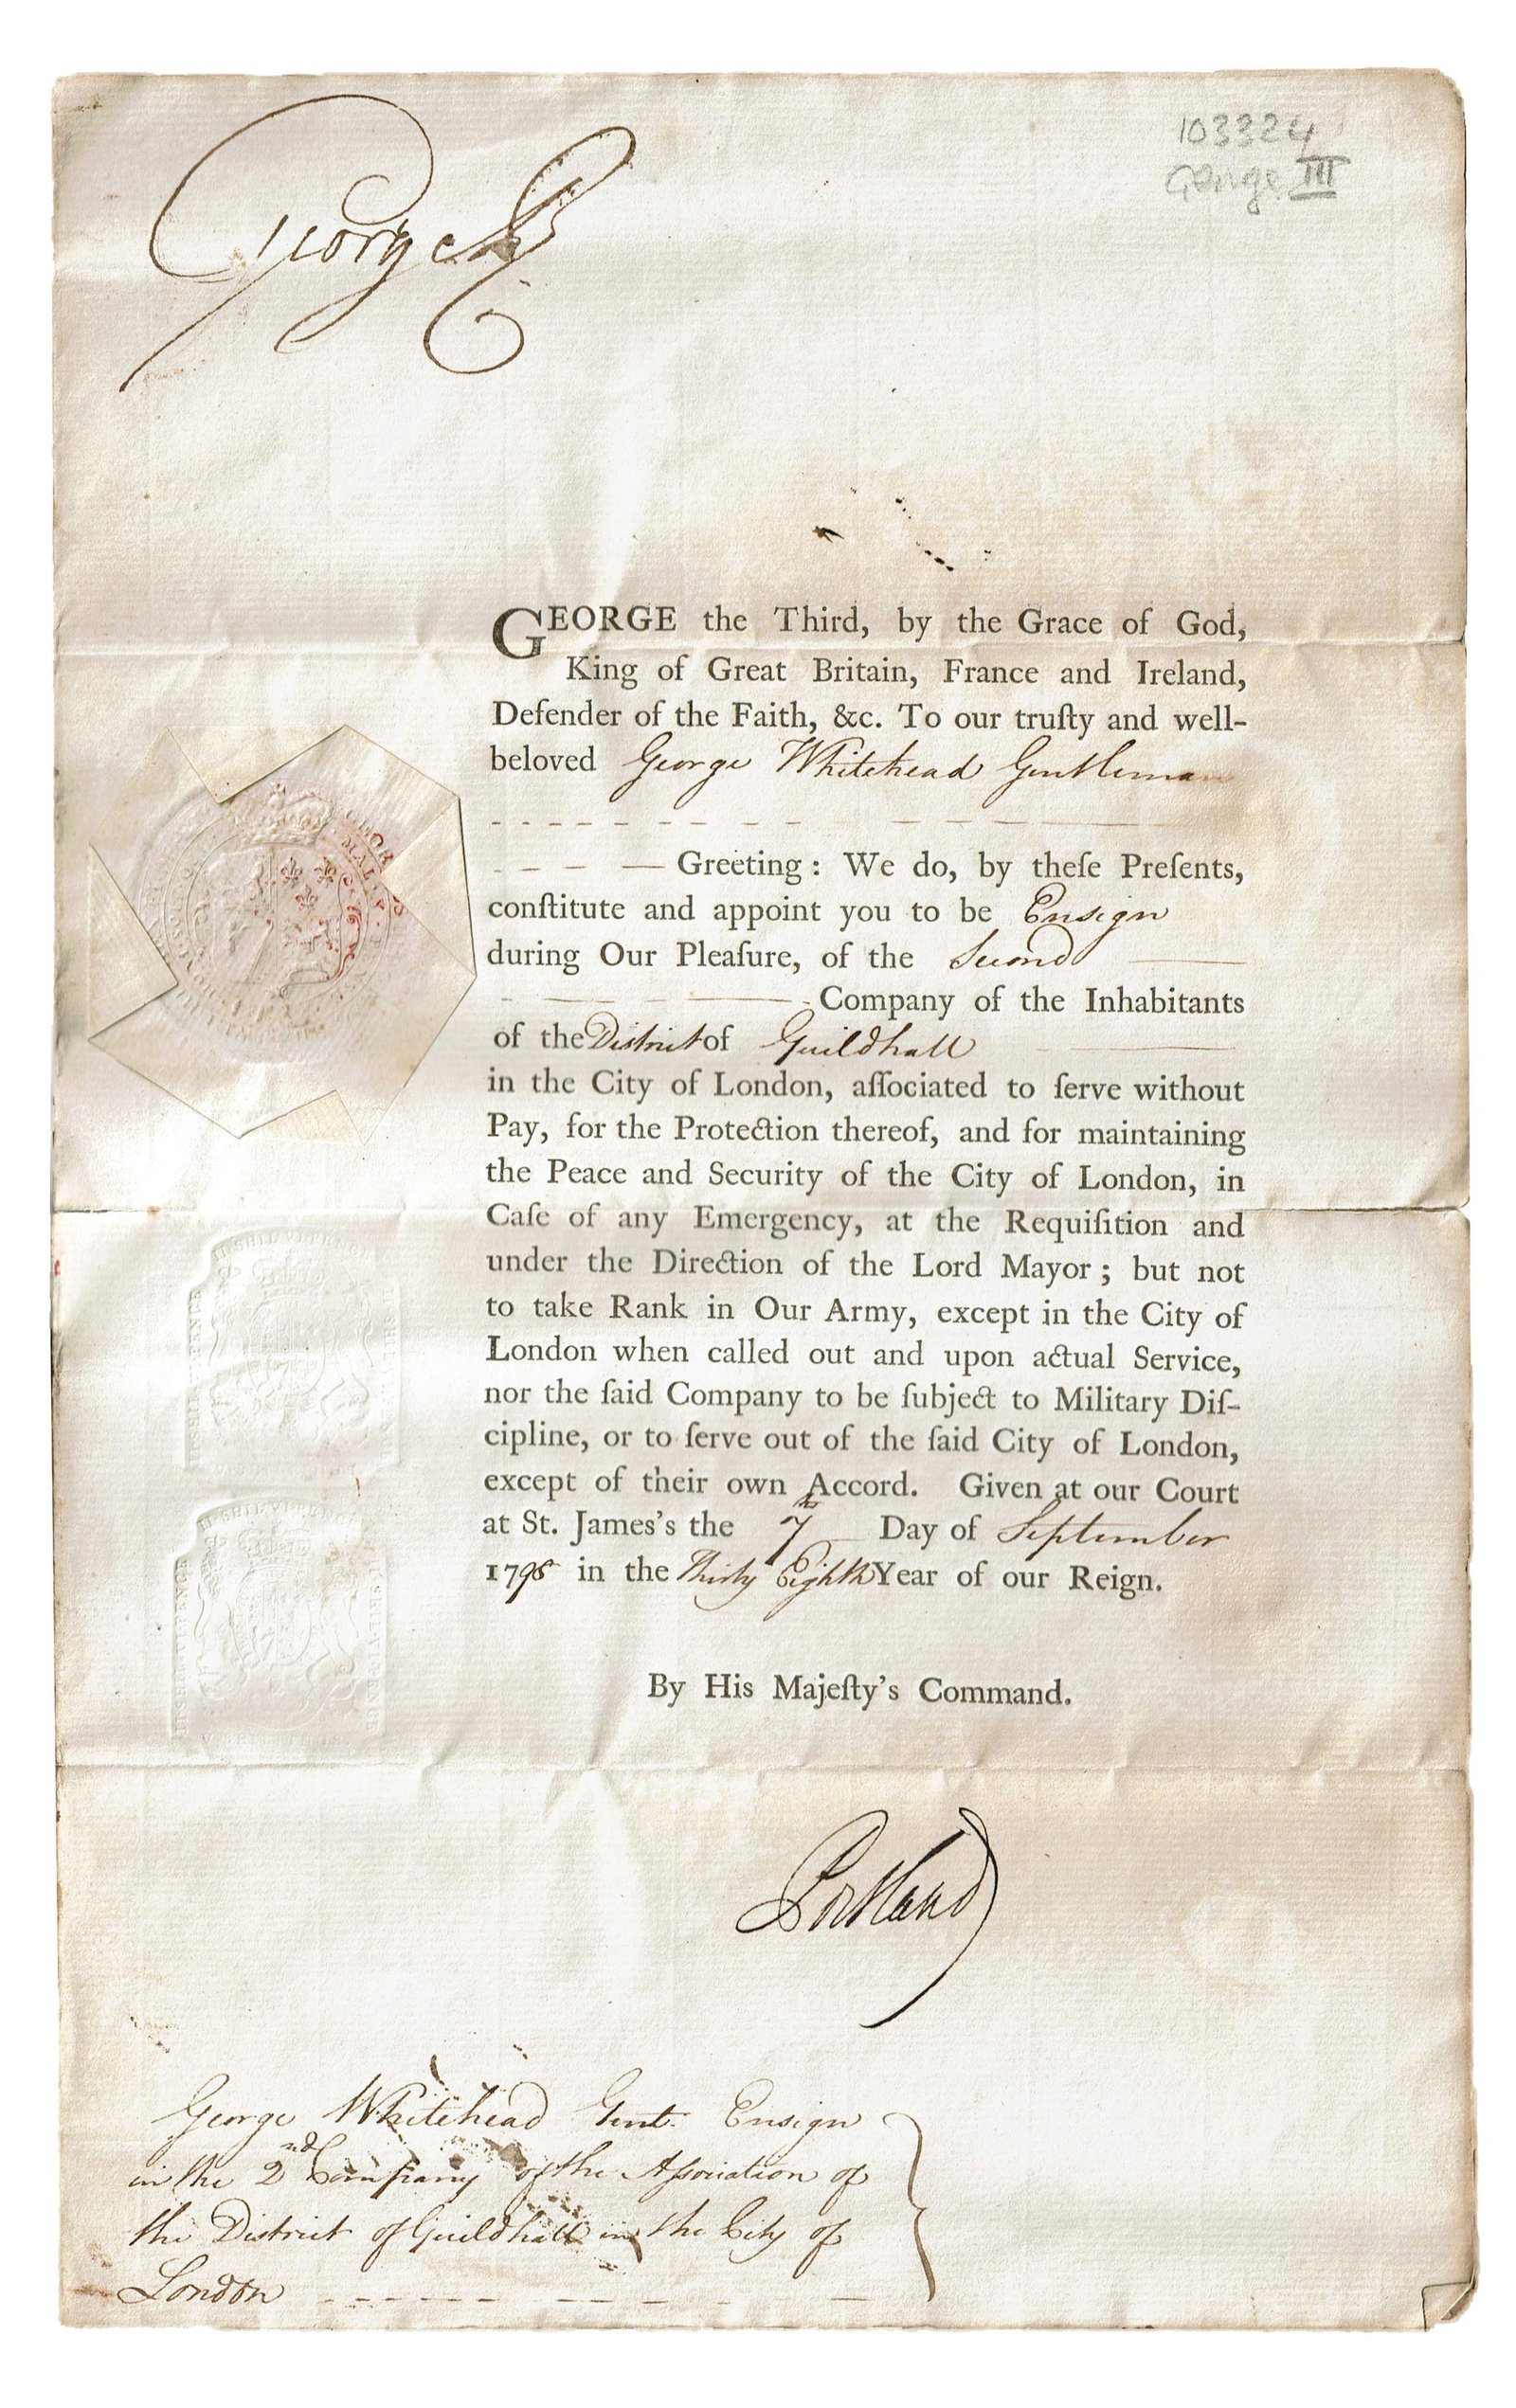 George R
103324
George III
GEORGE the Third, by the Grace of God,
King of Great Britain, France and Ireland,
Defender of the Faith, &c. To our truſty and well-
beloved George Whitehead Gentleman
Greeting : We do, by theſe Preſents,
conſtitute and appoint you to be Ensign
during Our Pleaſure, of the Second
Company of the Inhabitants
of the District of Guildhall
in the City of London, aſſociated to ſerve without
Pay, for the Protection thereof, and for maintaining
the Peace and Security of the City of London, in
Caſe of any Emergency, at the Requiſition and
under the Direction of the Lord Mayor ; but not
to take Rank in Our Army, except in the City of
London when called out and upon actual Service,
nor the ſaid Company to be ſubject to Military Diſ-
cipline, or to ſerve out of the ſaid City of London,
except of their own Accord. Given at our Court
at St. James's the 7th Day of September
1798 in the Thirty Eighth Year of our Reign.
By His Majeſty's Command.
Portland
George Whitehead Gent. Ensign
in the 2nd Company of the Aſsociation of
the District of Guildhall in the City of
London